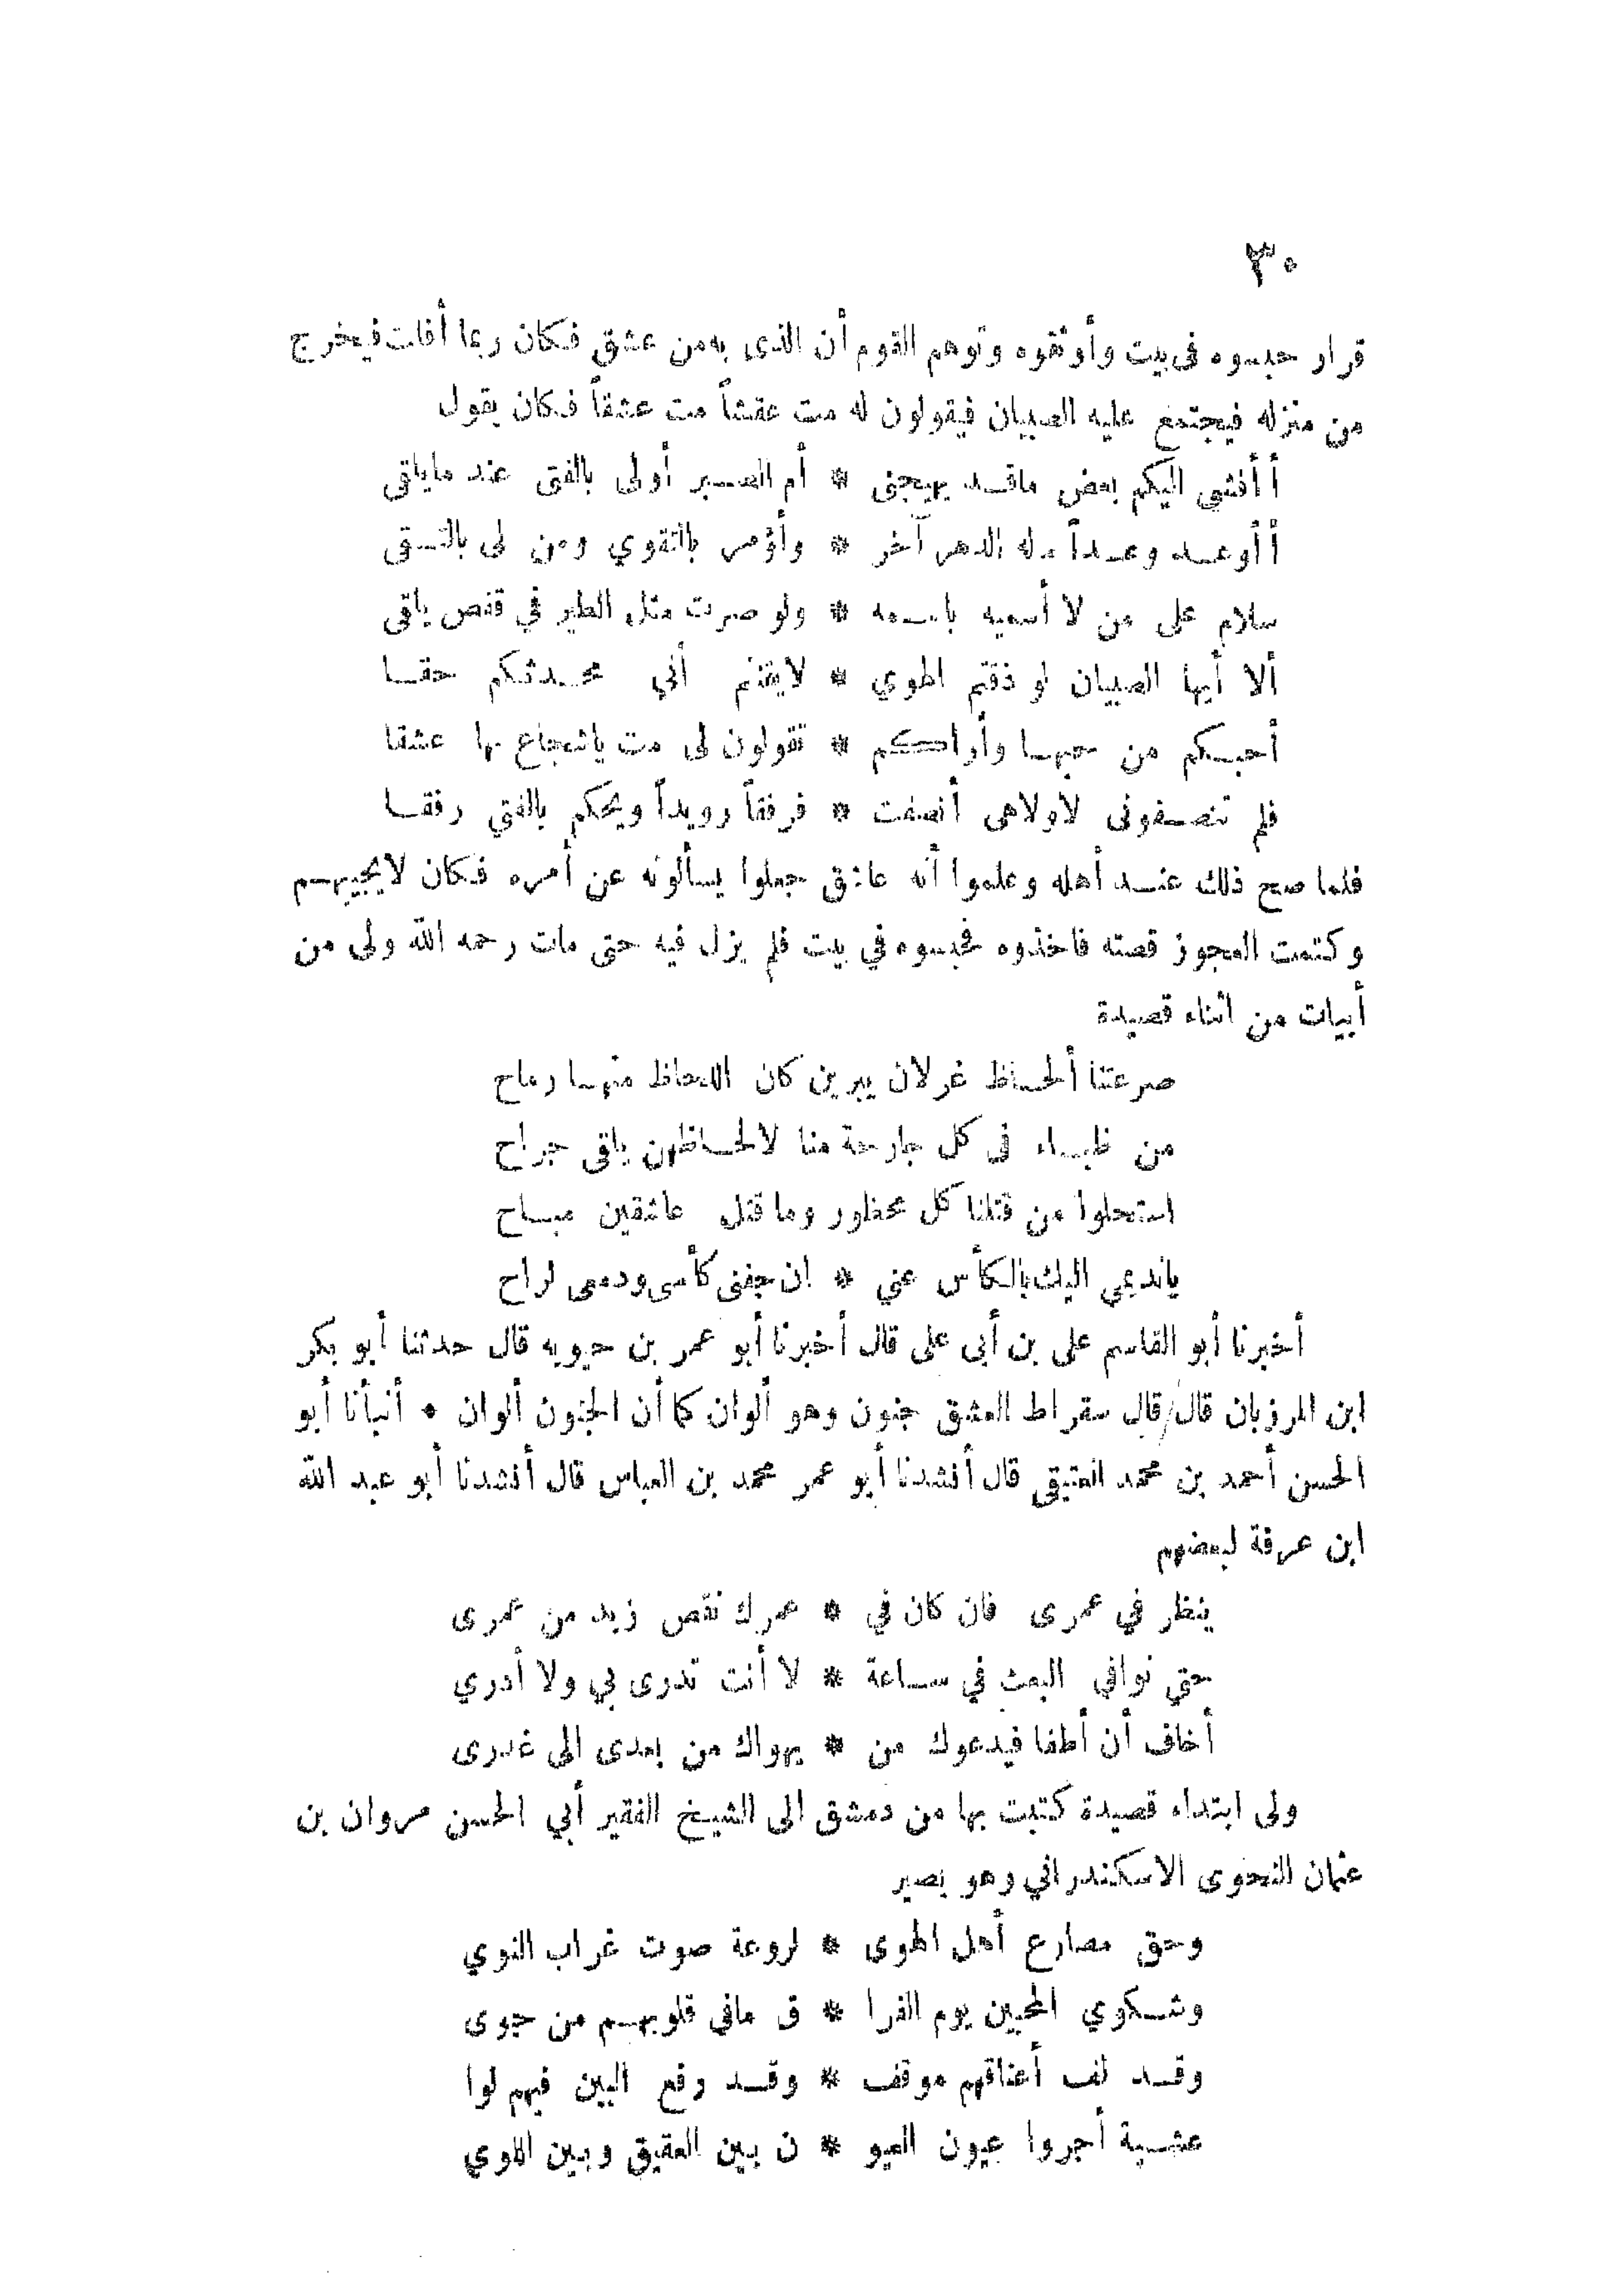 ٣٠
قرار حبسوه فى بيت وأوثقوه وتوهم القوم أن الذى به من عشق فكان ربما أفلت فيخرج
من منزله فيجتمع عليه الصبيان فيقولون له مت عقشاً مت عشقاً فكان يقول
أأفشى اليكم بعض ماقد يهيجنى * أم الصبر أولى بالفتى عند مايلقى
أأوعد وعداً ماله الدهر آخر * وأؤمر بالتقوي ومن لى بالتقى
سلام على من لا أسميه باسمه * ولو صرت مثل الطير في قفص يلقى
ألا أيها الصبيان لو ذقتم الهوي * لايقنتم أني محدثكم حقا
أحبكم من حبها وأراكم * تقولون لى مت ياشجاع بها عشقا
فلم تنصفونى لاولاهى أنصفت * فرفقاً رويداً ويحكم بالفتي رفقا
فلما صح ذلك عند أهله وعلموا أنه عاشق جعلوا يسألونه عن أمره فكان لايجيبهم
وكتمت العجوز قصته فاخذوه فحبسوه في بيت فلم يزل فيه حتى مات رحمه الله ولى من
أبيات من اثناء قصيدة
صرعتنا ألحاظ غزلان يبرين كان اللحاظ منها رماح
من ظباء فى كل جارحة منا لالحاظهن يلقى جراح
استحلوا من قتلنا كل محظور وما قتل عاشقين مباح
يانديمي اليك بالكأس عني * ان جفنى كأسى ودمعى لراح
أخبرنا أبو القاسم على بن أبى على قال أخبرنا أبو عمر بن حيويه قال حدثنا أبو بكر
ابن المرزبان قال قال سقراط العشق جنون وهو ألوان كما أن الجنون ألوان * أنبأنا أبو
الحسن أحمد بن محمد العتيقي قال أنشدنا أبو عمر محمد بن العباس قال أنشدنا أبو عبد الله
ابن عرفة لبعضهم
ينظر في عمرى فان كان في * عمرك نقص زيد من عمرى
حتي نوافي البعث في ساعة * لا أنت تدرى بي ولا أدري
أخاف أن أطفا فيدعوك من * يهواك من بعدى الى غدرى
ولى ابتداء قصيدة كتبت بها من دمشق الى الشيخ الفقير أبي الحسن مروان بن
عثمان النحوى الاسكندراني وهو بصير
وحق مصارع أهل الهوى * لروعة صوت غراب النوي
وشكوي المحبين يوم الفرا * ق مافي قلوبهم من جوى
وقد لف أعناقهم موقف * وقد رفع البين فيهم لوا
عشية أجروا عيون العيو * ن بين العقيق وبين اللوي